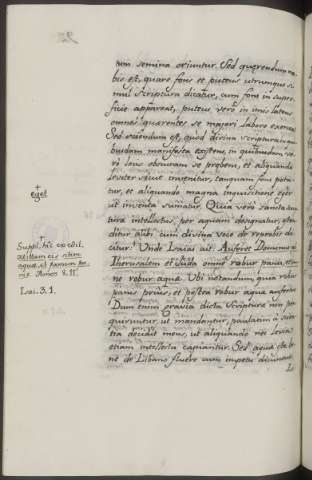 tum semina oriuntur. Sed quærendum no-
bis est, quare fons et puteus utrumque si-
mul Scriptura dicatur, cum fons in super-
ficie appareat, puteus vero in imis latens
omnes quærentes se majori labore exerceat.
Sed sciendum est, quod divina scriptura in qui-
busdam manifesta existens, in quibusdam ve-
ro suis obscuram se probem, et aliquando
leviter sicut tangentur, tanquam fons pota-
tur, et aliquando magna inquisitione ege-
at inventa sumatur. Quia vero sancta scrip-
tura intellectus, per aquam designatur, osten-
ditur alibi, cum divina voce de reprobis di-
citur: Unde Isaias ait: Auferet Dominus ab
Jherusalem et Juda omne robur panis, et om-
ne robur aquæ. Ubi notandum, quia robur
panis prius, et postea robur aquæ aufertur.
Dum enim gravia dicta Scriptura non per-
quiruntur, ut mandantur, paulatim a scien-
tia decidit mens, ut aliquando nec levia
etiam intellectu capiantur. Sed aquæ ista be-
ne de Libano fluere cum impetu dicuntur.
+
eget
Isai. 3. 1.